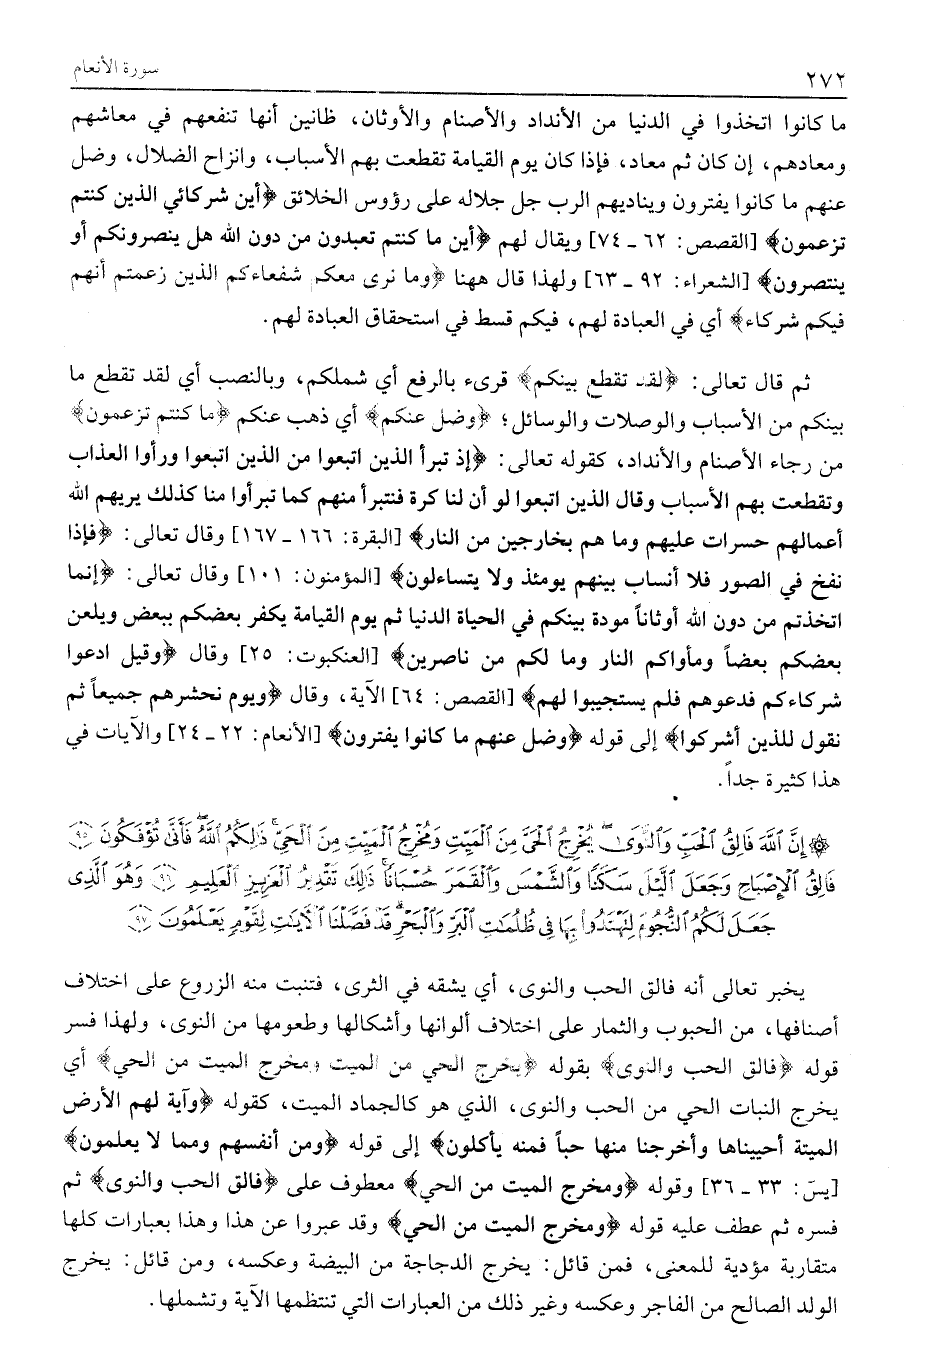 ٢٧٢
سورة الأنعام
ما كانوا اتخذوا في الدنيا من الأنداد والأصنام والأوثان، ظانين أنها تنفعهم في معاشهم
ومعادهم، إن كان ثم معاد، فإذا كان يوم القيامة تقطعت بهم الأسباب، وانزاح الضلال، وضل
عنهم ما كانوا يفترون ويناديهم الرب جل جلاله على رؤوس الخلائق ﴿أين شركائي الذين كنتم
تزعمون﴾ [القصص: ٦٢ ـ ٧٤] ويقال لهم ﴿أين ما كنتم تعبدون من دون الله هل ينصرونكم أو
ينتصرون﴾ [الشعراء: ٩٢ ـ ٦٣] ولهذا قال ههنا ﴿وما نرى معكم شفعاءكم الذين زعمتم أنهم
فيكم شركاء﴾ أي في العبادة لهم، فيكم قسط في استحقاق العبادة لهم.
ثم قال تعالى: ﴿لقد تقطع بينكم﴾ قرىء بالرفع أي شملكم، وبالنصب أي لقد تقطع ما
بينكم من الأسباب والوصلات والوسائل؛ ﴿وضل عنكم﴾ أي ذهب عنكم ﴿ما كنتم تزعمون﴾
من رجاء الأصنام والأنداد، كقوله تعالى: ﴿إذ تبرأ الذين اتبعوا من الذين اتبعوا ورأوا العذاب
وتقطعت بهم الأسباب وقال الذين اتبعوا لو أن لنا كرة فنتبرأ منهم كما تبرأوا منا كذلك يريهم الله
أعمالهم حسرات عليهم وما هم بخارجين من النار﴾ [البقرة: ١٦٦ ـ ١٦٧] وقال تعالى: ﴿فإذا
نفخ في الصور فلا أنساب بينهم يومئذ ولا يتساءلون﴾ [المؤمنون: ١٠١] وقال تعالى: ﴿إنما
اتخذتم من دون الله أوثاناً مودة بينكم في الحياة الدنيا ثم يوم القيامة يكفر بعضكم ببعض ويلعن
بعضكم بعضاً ومأواكم النار وما لكم من ناصرين﴾ [العنكبوت: ٢٥] وقال ﴿وقيل ادعوا
شركاءكم فدعوهم فلم يستجيبوا لهم﴾ [القصص: ٦٤] الآية، وقال ﴿ويوم نحشرهم جميعاً ثم
نقول للذين أشركوا﴾ إلى قوله ﴿وضل عنهم ما كانوا يفترون﴾ [الأنعام: ٢٢ ـ ٢٤] والآيات في
هذا كثيرة جداً.
۞ إِنَّ ٱللَّهَ فَالِقُ ٱلْحَبِّ وَٱلنَّوَىٰ يُخْرِجُ ٱلْحَىَّ مِنَ ٱلْمَيِّتِ وَمُخْرِجُ ٱلْمَيِّتِ مِنَ ٱلْحَىِّ ذَٰلِكُمُ ٱللَّهُ فَأَنَّىٰ تُؤْفَكُونَ ﴿٩٥﴾
فَالِقُ ٱلْإِصْبَاحِ وَجَعَلَ ٱلَّيْلَ سَكَنًا وَٱلشَّمْسَ وَٱلْقَمَرَ حُسْبَانًا ذَٰلِكَ تَقْدِيرُ ٱلْعَزِيزِ ٱلْعَلِيمِ ﴿٩٦﴾ وَهُوَ ٱلَّذِى
جَعَلَ لَكُمُ ٱلنُّجُومَ لِتَهْتَدُوا۟ بِهَا فِى ظُلُمَٰتِ ٱلْبَرِّ وَٱلْبَحْرِ قَدْ فَصَّلْنَا ٱلْءَايَٰتِ لِقَوْمٍ يَعْلَمُونَ ﴿٩٧﴾
يخبر تعالى أنه فالق الحب والنوى، أي يشقه في الثرى، فتنبت منه الزروع على اختلاف
أصنافها، من الحبوب والثمار على اختلاف ألوانها وأشكالها وطعومها من النوى، ولهذا فسر
قوله ﴿فالق الحب والنوى﴾ بقوله ﴿يخرج الحي من الميت ومخرج الميت من الحي﴾ أي
يخرج النبات الحي من الحب والنوى، الذي هو كالجماد الميت، كقوله ﴿وآية لهم الأرض
الميتة أحييناها وأخرجنا منها حباً فمنه يأكلون﴾ إلى قوله ﴿ومن أنفسهم ومما لا يعلمون﴾
[يسۤ: ٣٣ ـ ٣٦] وقوله ﴿ومخرج الميت من الحي﴾ معطوف على ﴿فالق الحب والنوى﴾ ثم
فسره ثم عطف عليه قوله ﴿ومخرج الميت من الحي﴾ وقد عبروا عن هذا وهذا بعبارات كلها
متقاربة مؤدية للمعنى، فمن قائل: يخرج الدجاجة من البيضة وعكسه، ومن قائل: يخرج
الولد الصالح من الفاجر وعكسه وغير ذلك من العبارات التي تنتظمها الآية وتشملها.